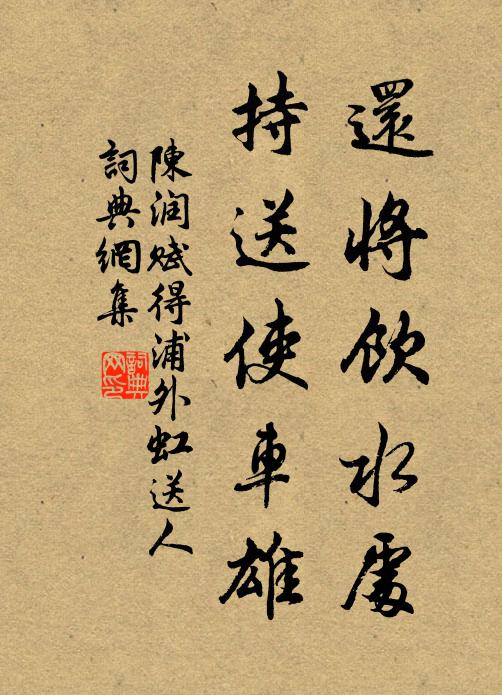 還將飲水處
持送使車雄
陳潤賦得浦外虹送人
詞典網集
詞典网印